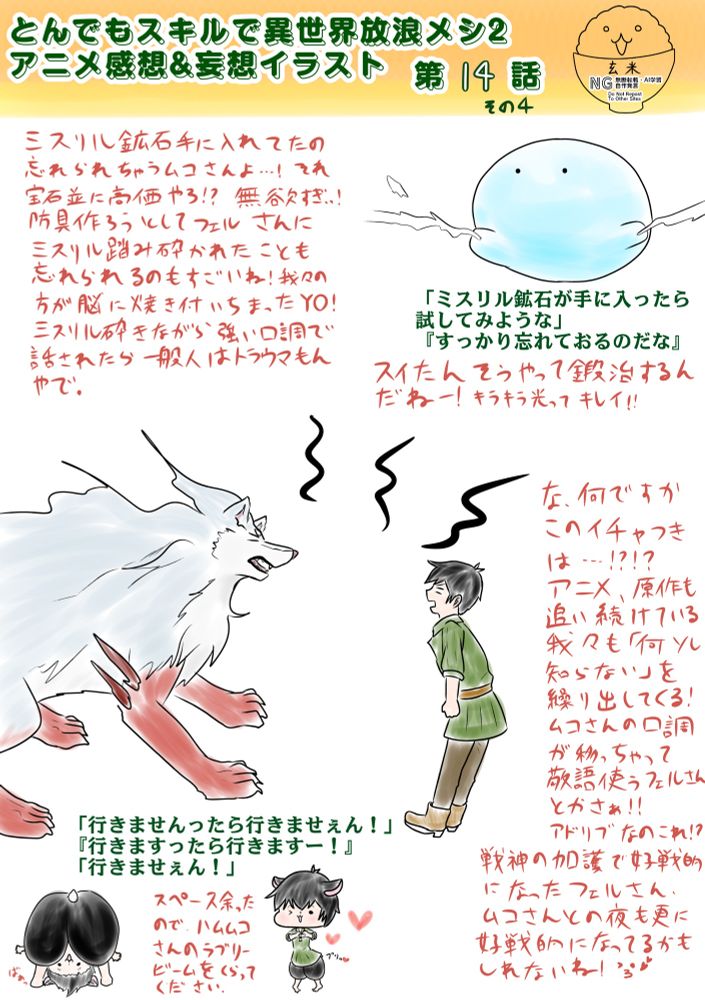 とんでもスキルで異世界放浪メシ2
アニメ感想&妄想イラスト 第14話
その4
玄米
NG 無断転載・AI学習
自作発言
Do Not Repost
To Other Sites
ミスリル鉱石手に入れてたの
忘れられちゃうムコさんよ…!それ
宝石並に高価やろ!?無欲すぎ..!
防具作ろうとしてフェルさんに
ミスリル踏み砕かれたことも
忘れられるのもすごいね!我々の
方が脳に焼き付いちまったYO!
ミスリル砕きながら強い口調で
話されたら一般人はトラウマもん
やで。
「ミスリル鉱石が手に入ったら
試してみような」
『すっかり忘れておるのだな』
スイたんそうやって鍛治するん
だねー!キラキラ光ってキレイ!!
な、何ですか
このイチャつき
は…!?!?
アニメ、原作も
追い続けている
我々も「何ソレ
知らない」を
繰り出してくる!
ムコさんの口調
が移っちゃって
敬語使うフェルさん
とかさぁ!!
アドリブなのこれ!?
戦神の加護で好戦的
になったフェルさん、
ムコさんとの夜も更に
好戦的になってるかも
しれないね!
「行きませんったら行きませぇん!」
『行きますったら行きますー!』
「行きませぇん!」
スペース余った
ので、ハムムコ
さんのラブリー
ビームをくらって
ください。